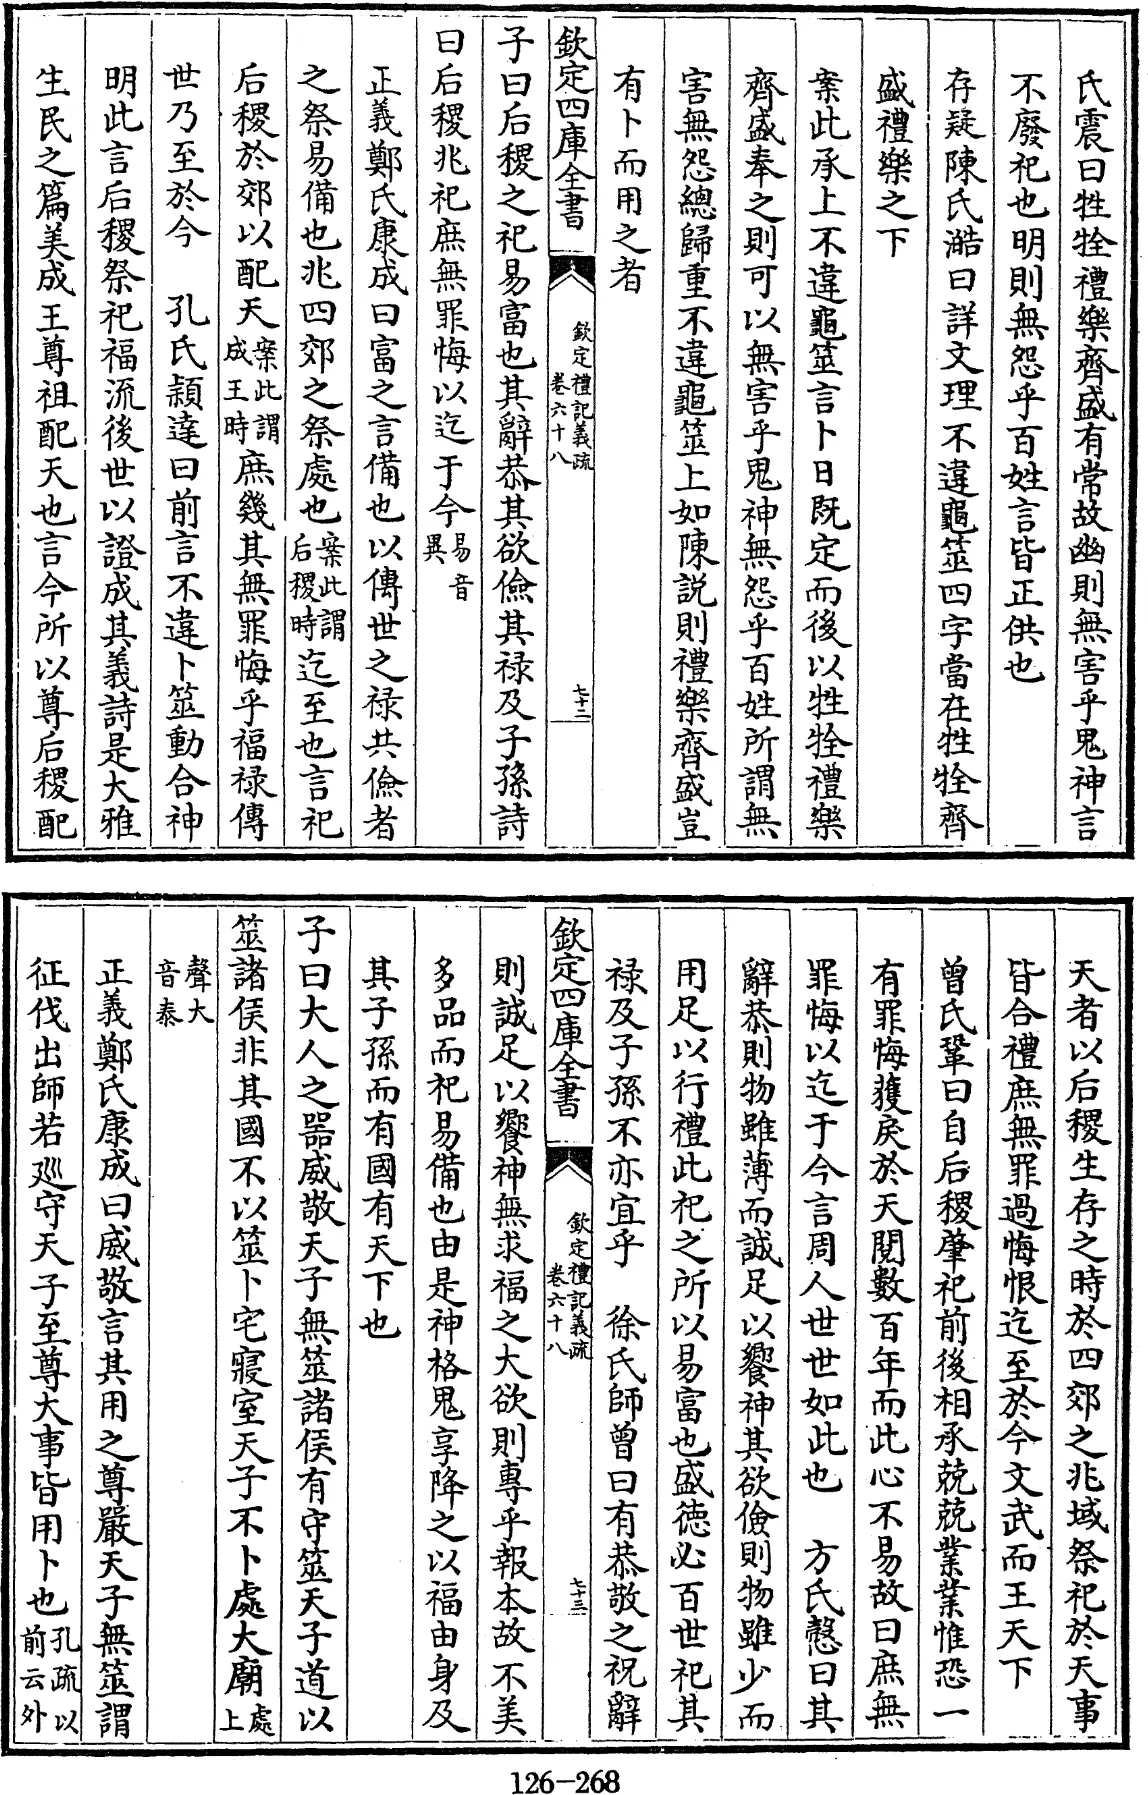 氏震曰牲牷禮樂齊盛有常故幽則無害乎鬼神言
不廢祀也明則無怨乎百姓言皆正供也
存疑陳氏澔曰詳文理不違龜筮四字當在牲牷齊
盛禮樂之下
案此承上不違龜筮言卜日既定而後以牲牷禮樂
齊盛奉之則可以無害乎鬼神無怨乎百姓所謂無
害無怨總歸重不違龜筮上如陳説則禮樂齊盛豈
有卜而用之者
欽定四庫全書
欽定禮記義疏
卷六十八
七十二
子曰后稷之祀易富也其辭恭其欲儉其禄及子孫詩
曰后稷兆祀庶無罪悔以迄于今易音異
正義鄭氏康成曰富之言備也以傳世之禄共儉者
之祭易備也兆四郊之祭處也案此謂后稷時迄至也言祀
后稷於郊以配天案此謂成王時庶幾其無罪悔乎福禄傳
世乃至於今　孔氏穎達曰前言不違卜筮動合神
明此言后稷祭祀福流後世以證成其義詩是大雅
生民之篇美成王尊祖配天也言今所以尊后稷配
天者以后稷生存之時於四郊之兆域祭祀於天事
皆合禮庶無罪過悔恨迄至於今文武而王天下
曾氏鞏曰自后稷肇祀前後相承兢兢業業惟恐一
有罪悔獲戾於天閱數百年而此心不易故曰庶無
罪悔以迄于今言周人世世如此也　方氏慤曰其
辭恭則物雖薄而誠足以饗神其欲儉則物雖少而
用足以行禮此祀之所以易富也盛徳必百世祀其
禄及子孫不亦宜乎　徐氏師曾曰有恭敬之祝辭
欽定四庫全書
欽定禮記義疏
卷六十八
七十三
則誠足以饗神無求福之大欲則專乎報本故不美
多品而祀易備也由是神格鬼享降之以福由身及
其子孫而有國有天下也
子曰大人之器威敬天子無筮諸侯有守筮天子道以
筮諸侯非其國不以筮卜宅寢室天子不卜處大廟處上
聲大音泰
正義鄭氏康成曰威敬言其用之尊嚴天子無筮謂
征伐出師若廵守天子至尊大事皆用卜也孔疏以前云外
126-268